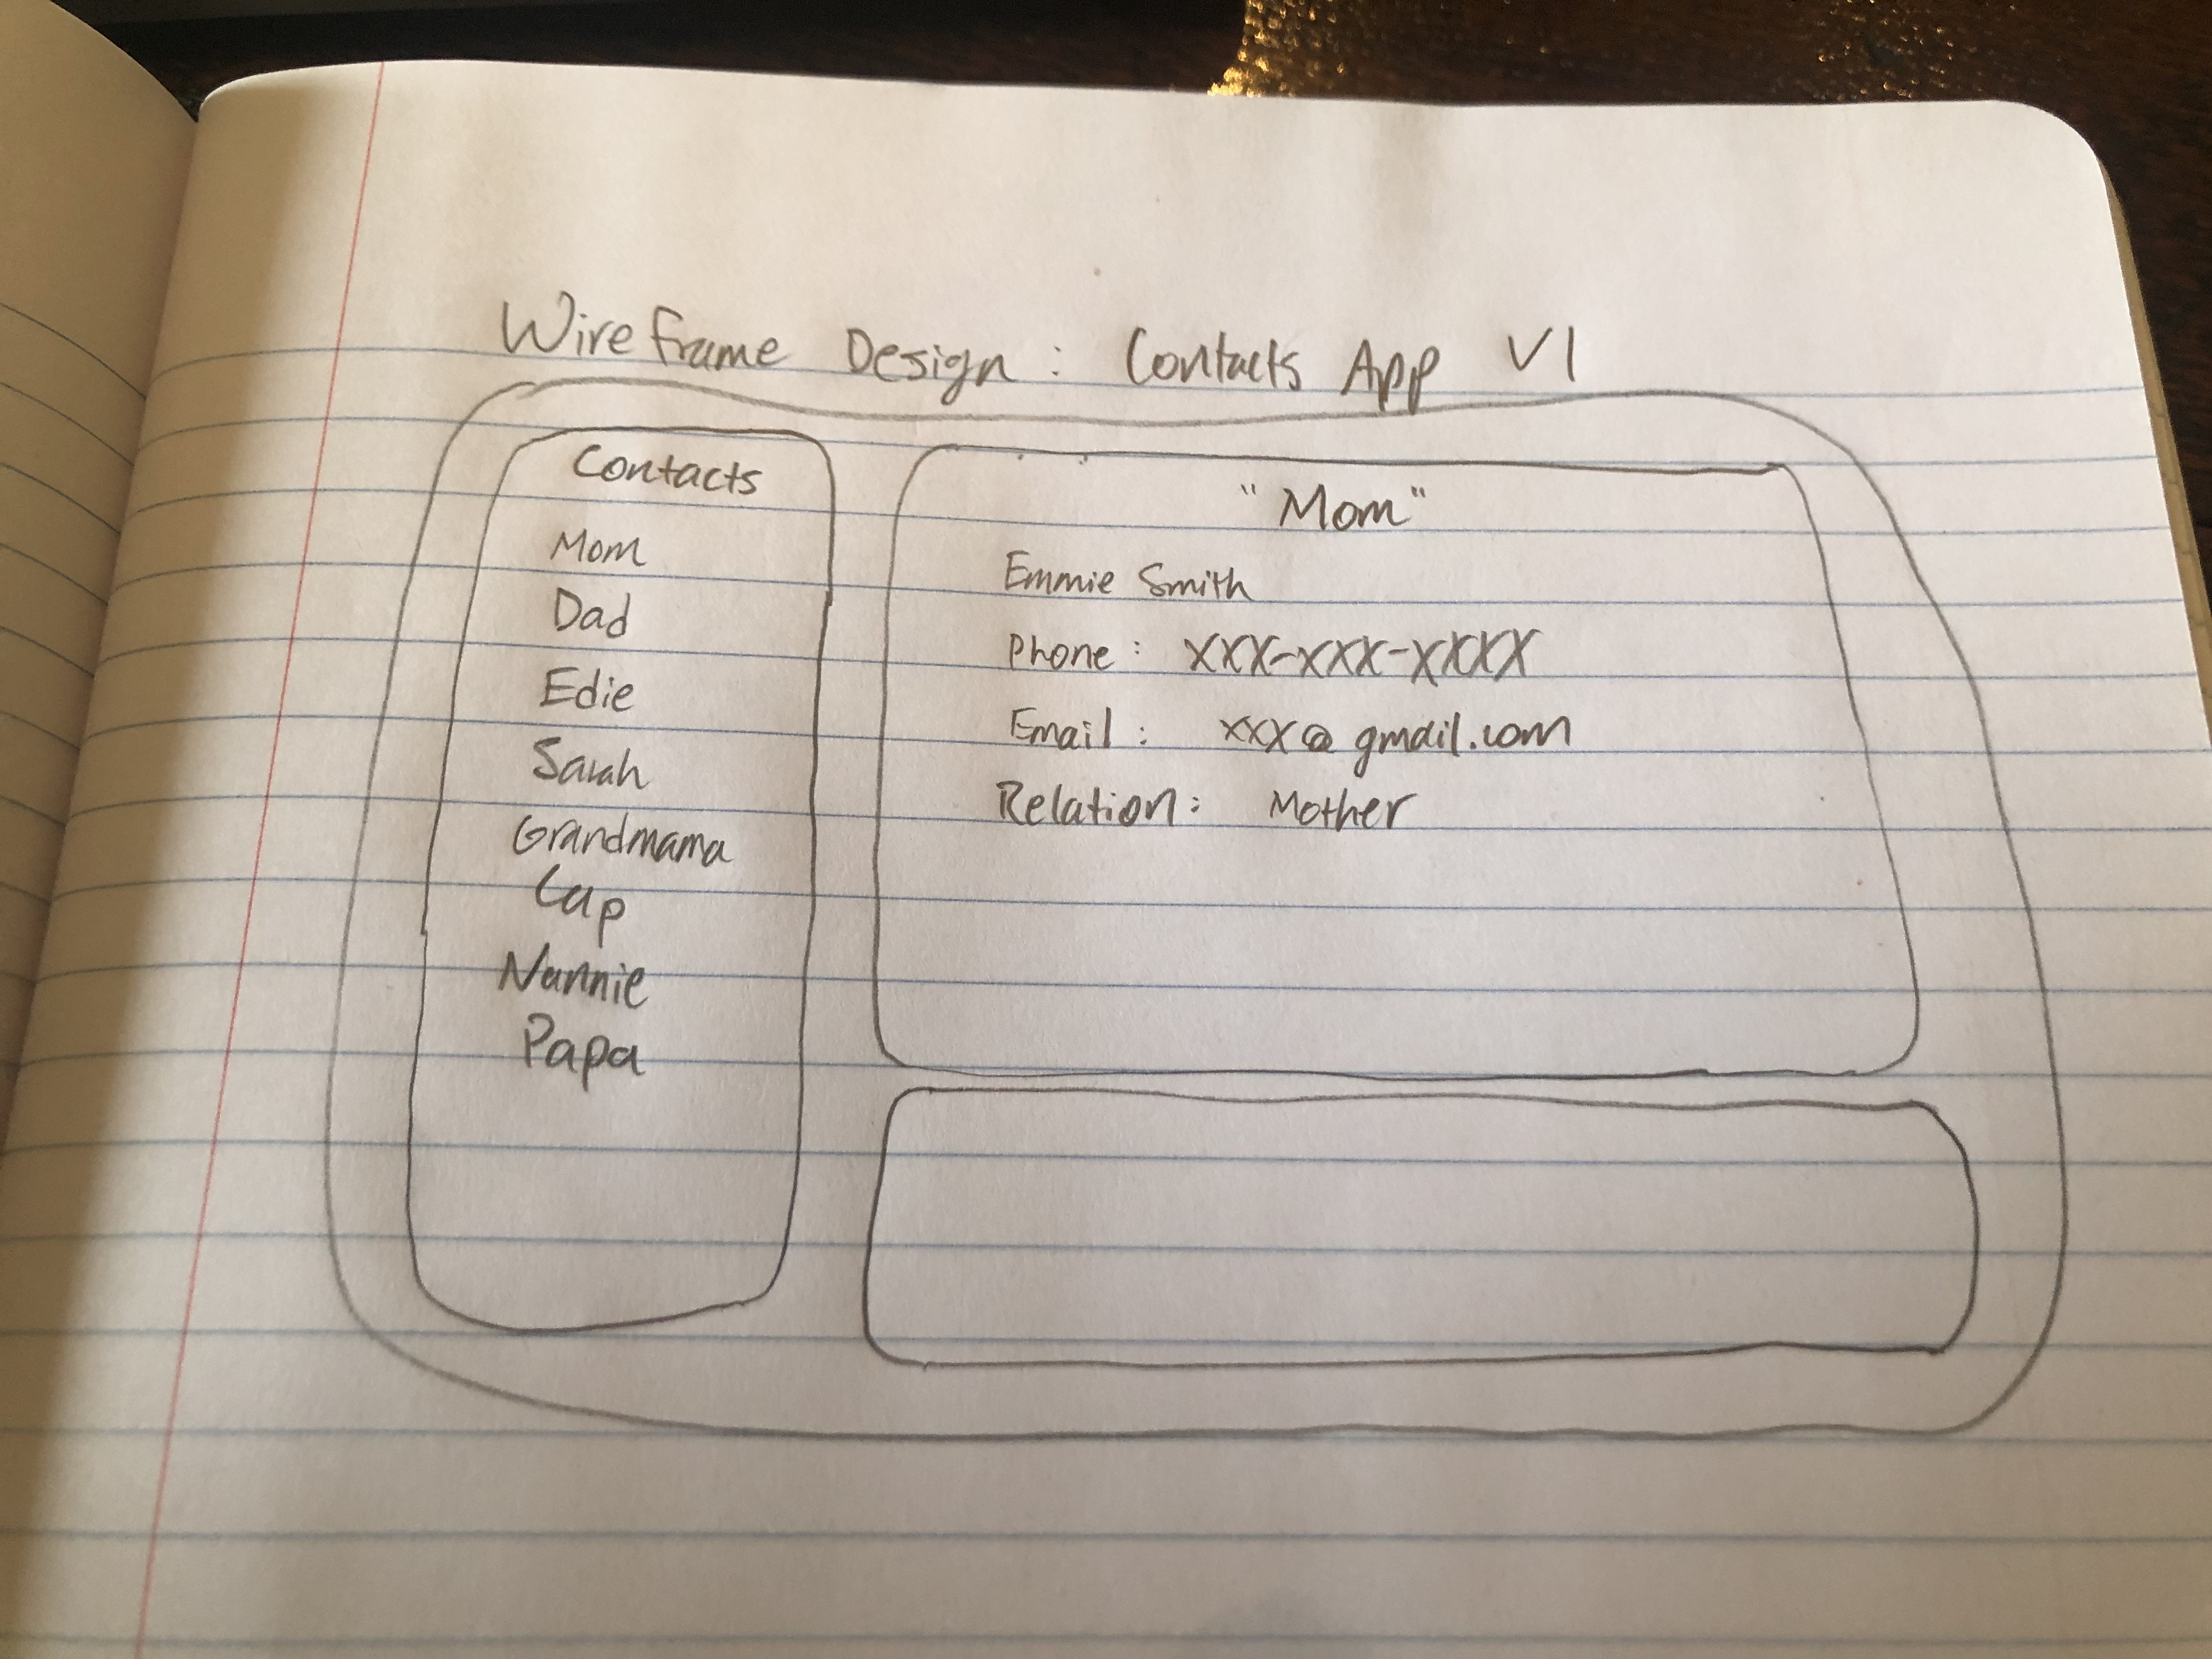 Wireframe Design: Contacts App V1
Contacts
Mom
Dad
Edie
Sarah
Grandmama
Cap
Nannie
Papa
"Mom"
Emmie Smith
Phone: XXX-XXX-XXXX
Email: xxx@gmail.com
Relation: Mother